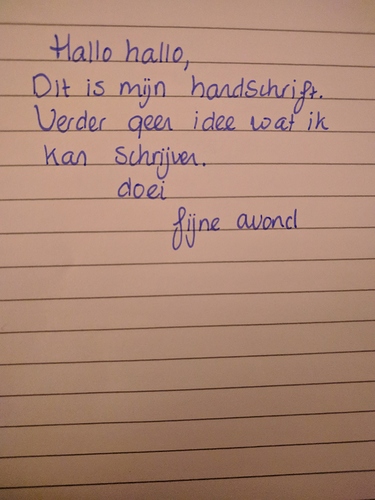 Hallo hallo,
Dit is mijn handschrift.
Verder geen idee wat ik
kan schrijven.
doei
fijne avond